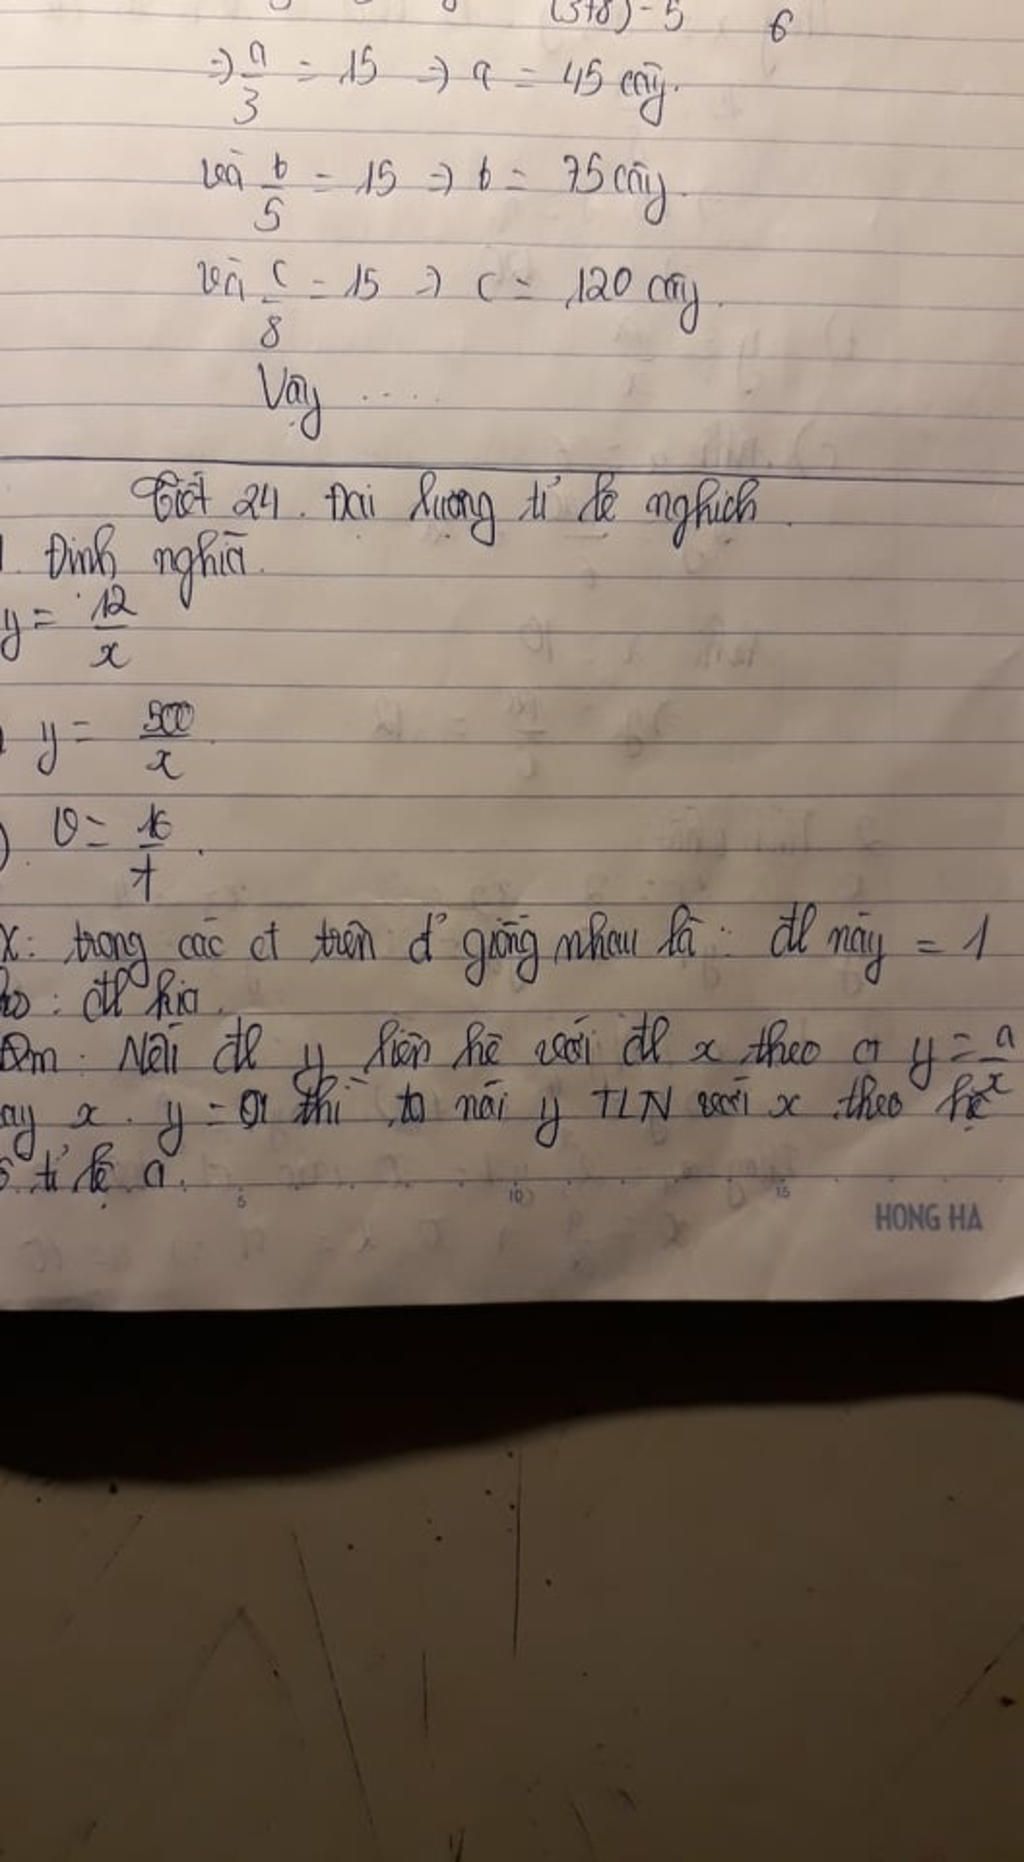 (3+8)-5 6
=> a/3 = 15 => a = 45 cây.
và b/5 = 15 => b = 75 cây.
và c/8 = 15 => c = 120 cây.
Vậy ....
Tiết 24. Đại lượng tỉ lệ nghịch.
1. Định nghĩa.
y = 12/x
y = 500/x
v = 16/t.
X: trong các ct trên đ' giống nhau là: đl này = 1
: đl kia.
Nếu đl y liên hệ với đl x theo ct y = a/x
ay x . y = a thì ta nói y TLN với x theo hệ
tỉ lệ a.
5 10 15
HONG HA